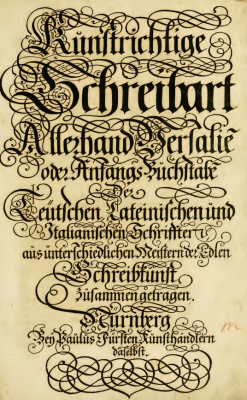 Kunstrichtige
Schreibart
Allerhand Versalie
oder Anfangs Buchstabē
Der
Teütschen Lateinischen und
Italianischen Schrifften
aus unterschiedlichen Meistern der Edlen
Schreibkunst
zusammen getragen.
Nürnberg
Bey Paulus Fürsten Kunsthändlern
daselbst.